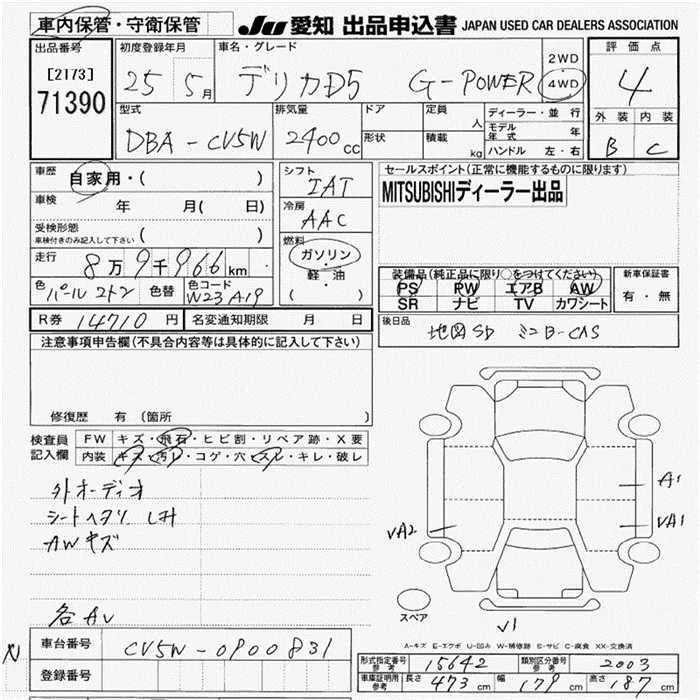 車内保管・守衛保管
JU 愛知 出品申込書 JAPAN USED CAR DEALERS ASSOCIATION
出品番号 初度登録年月 車名・グレード 評価点
[2173] 25 5月 デリカD5 G-POWER 2WD 4WD 4
71390
型式 排気量 ドア 定員 人 ディーラー・並行 外装 内装
DBA-CV5W 2400cc 形状 積載 kg モデル年式 年 B C
ハンドル 左・右
車歴 自家用・( ) シフト IAT セールスポイント(正常に機能するものに限ります)
車検 年 月( 日) 冷房 AAC MITSUBISHIディーラー出品
受検形態
車検付きのみ記入して下さい ( ) 燃料
走行 8万9千966km ガソリン・軽油 ( ) 装備品(純正品に限り○をつけてください) 新車保証書
PS PW エアB AW 有・無
SR ナビ TV カワシート
色 パール2トン 色替 色コード W23A19
R券 14710円 名変通知期限 月 日 後日品 地図SD ミニB-CAS
注意事項申告欄(不具合内容等は具体的に記入して下さい)
修復歴 有(箇所
検査員記入欄 FW キズ・飛石・ヒビ割・リペア跡・X要
内装 キズ・汚レ・コゲ・穴・スレ・キレ・破レ
外オーディオ
シートヘタリ シミ
AWキズ
各AU
A1
UA1
UA2
U1
スペア
A-キズ E-エクボ U-凹み W-補修跡 S-サビ C-腐食 XX-交換済
N 車台番号 CV5W-0900831
登録番号
形式指定番号 参考 15642 類別区分番号 参考 2003
車庫証明用 参考 長さ 473cm 幅 179cm 高さ 187cm